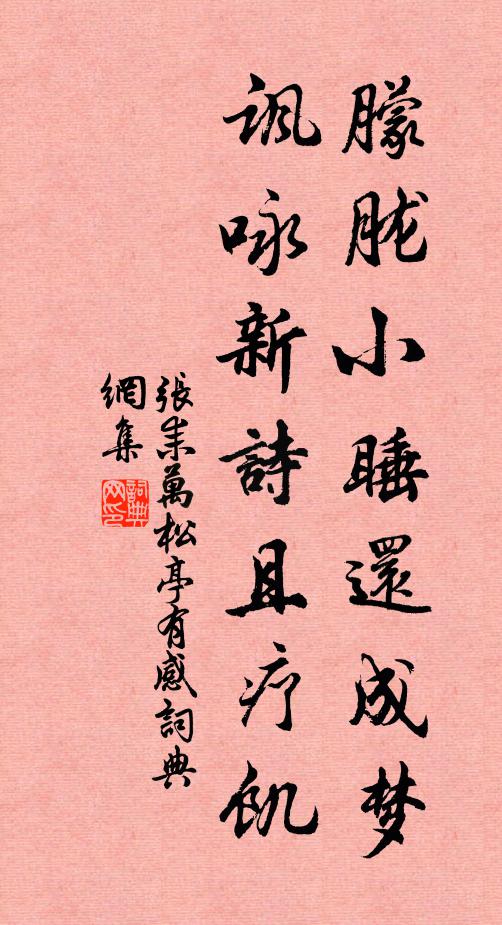 朦胧小睡還成梦
諷咏新詩且疗飢
張耒萬松亭有感詞典
網集
詞典网印